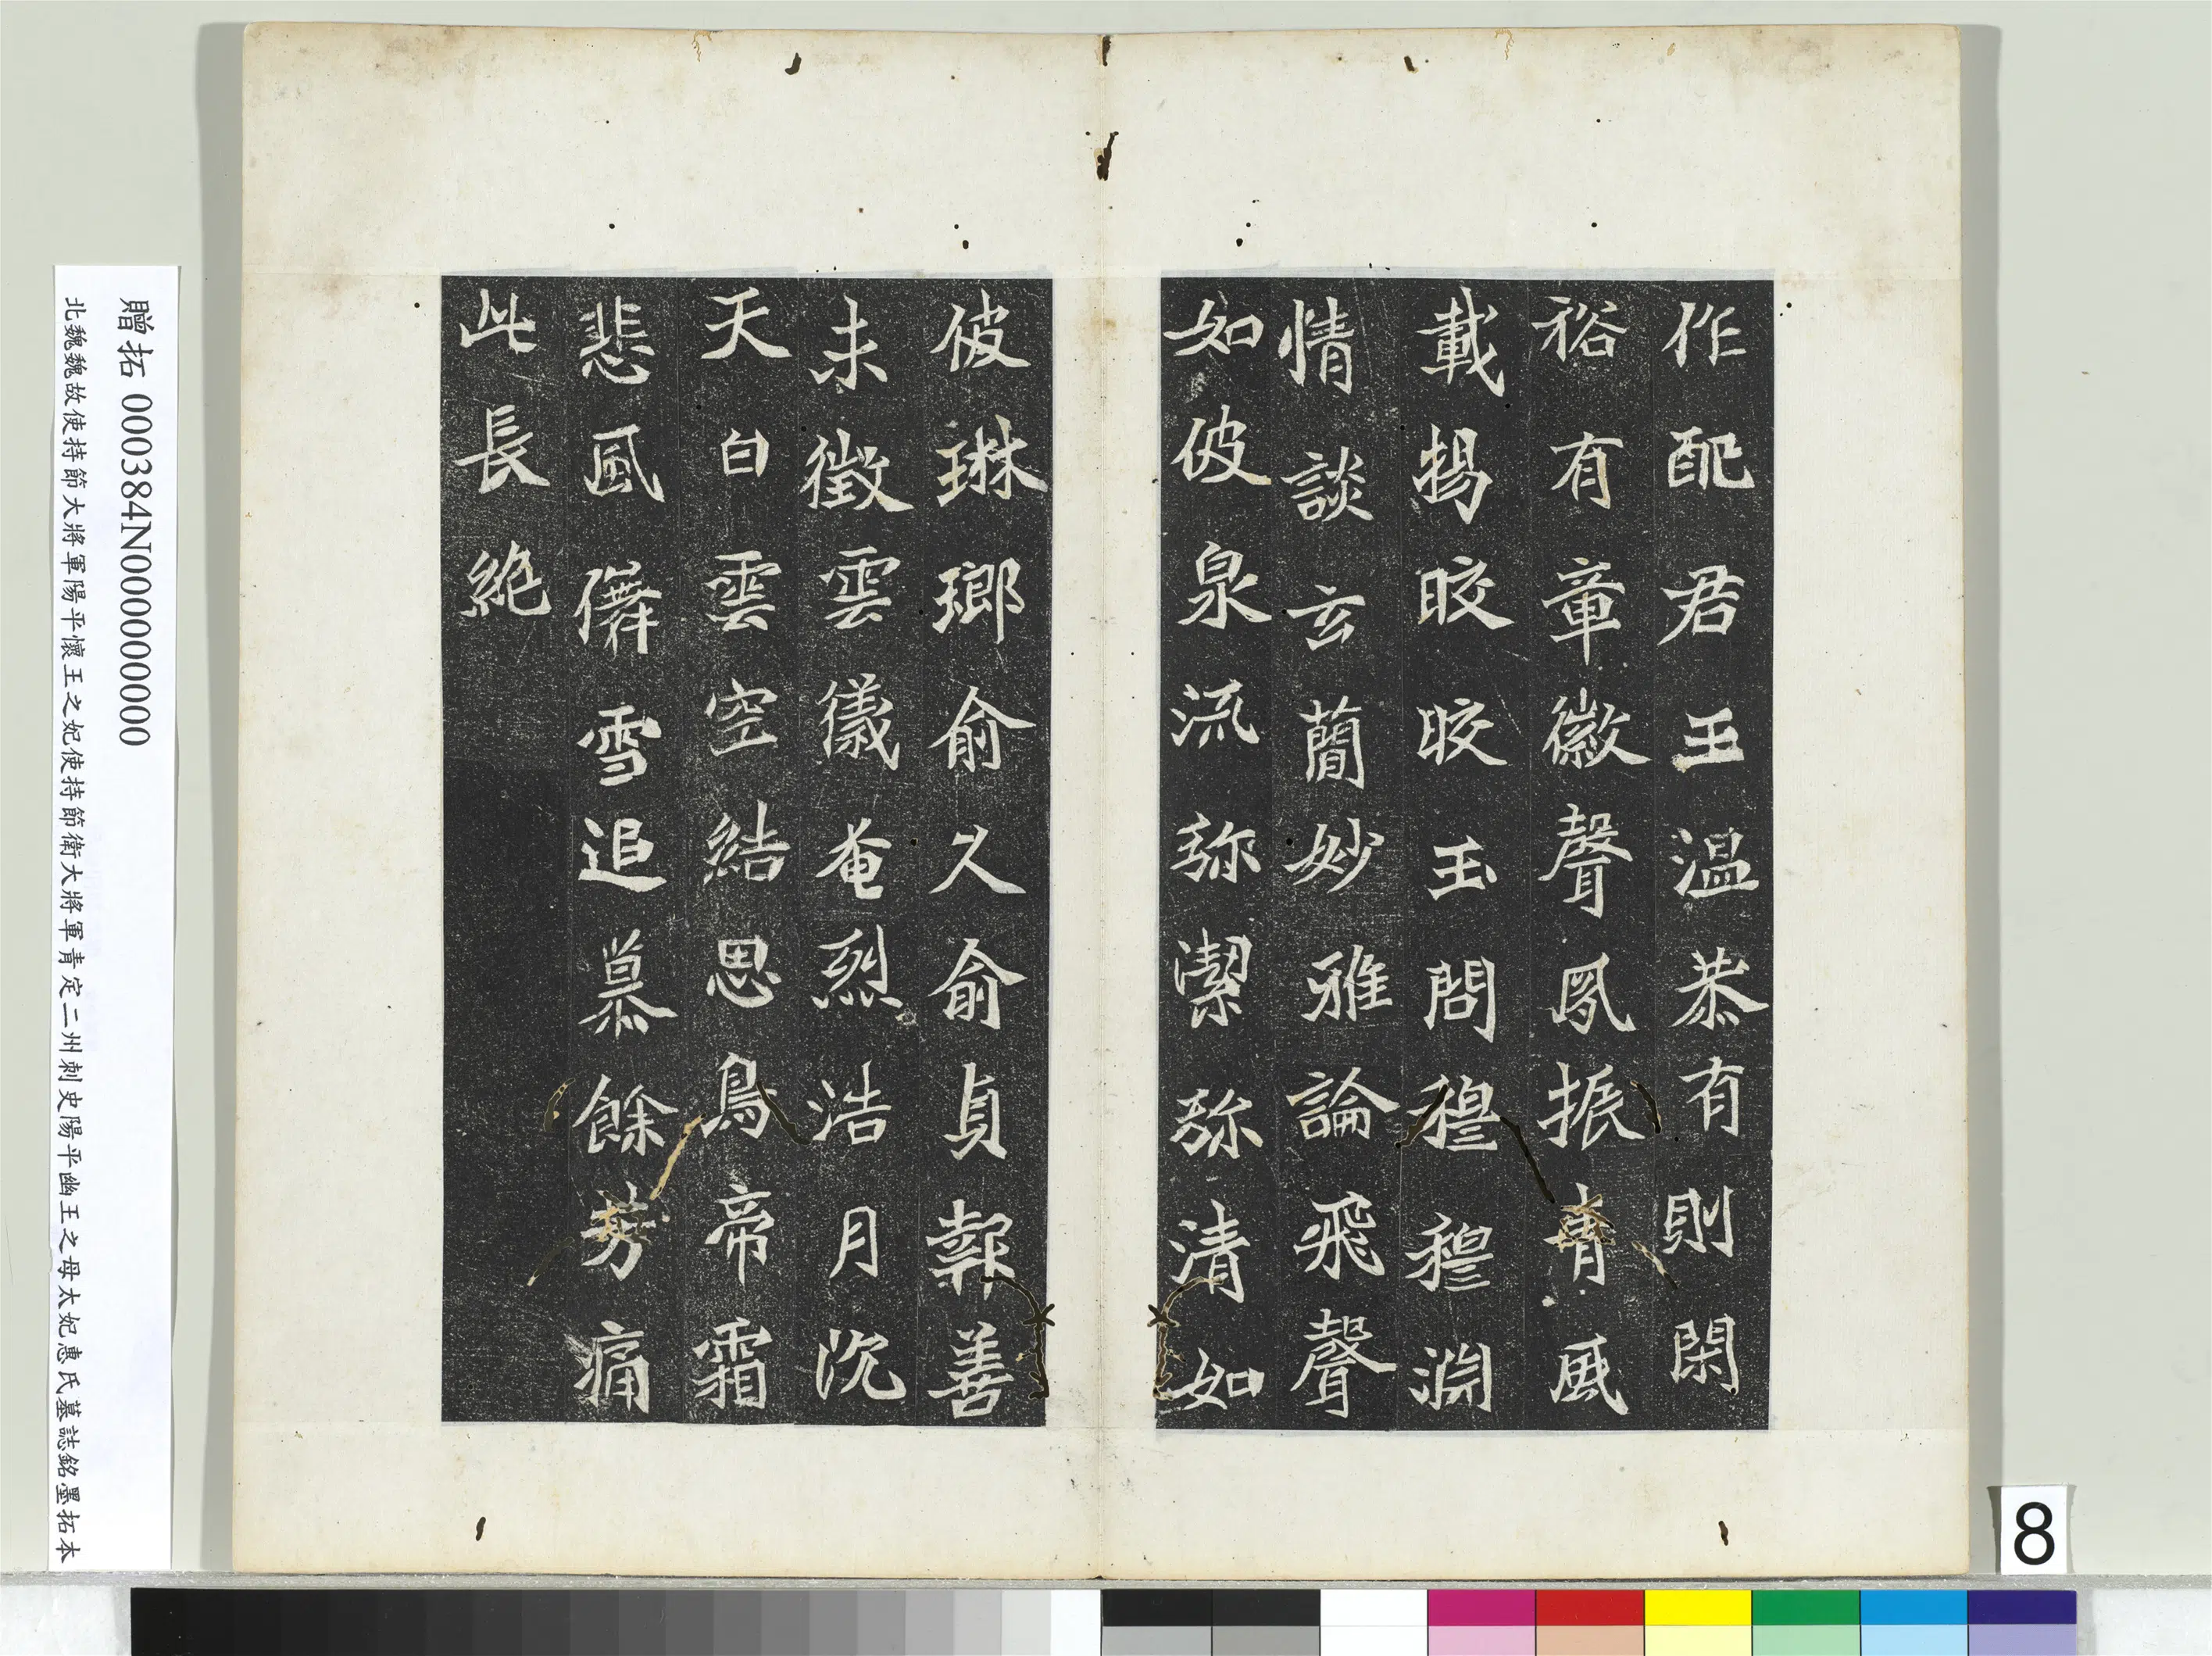 作配君王温恭有則閑
裕有章徽聲夙振青風
載揚晈晈玉問穆穆淵
情談玄蕳妙雅論飛聲
如彼泉流弥潔弥清如
彼琳瑯俞久俞貞報善
未徵雲儀奄烈浩月沈
天白雲空結思鳥帝霜
悲風儛雪追慕餘芳痛
此長絶
贈拓 000384N000000000
北魏魏故使持節大將軍陽平懷王之妃使持節衛大將軍青定二州刺史陽平幽王之母太妃惠氏墓誌銘墨拓本
8